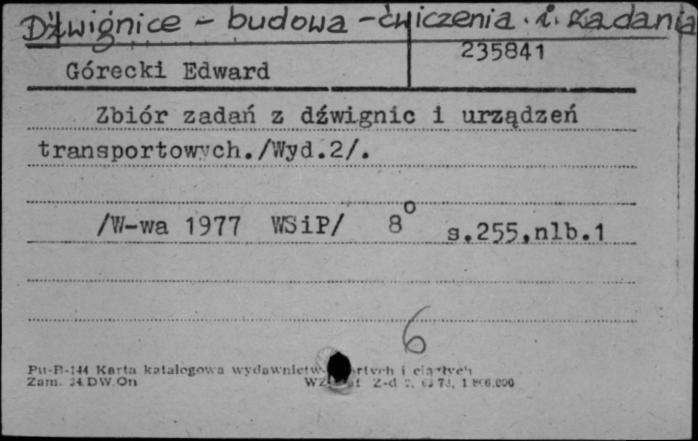 Dźwignice - budowa - ćwiczenia i zadania
235841
Górecki Edward
Zbiór zadań z dźwignic i urządzeń
transportowych./Wyd.2/.
/W-wa 1977 WSiP/ 8° s.255,nlb.1
6
Pu-B-144 Karta katalogowa wydawnictw i ciągłych
Zam. DW On Z-d